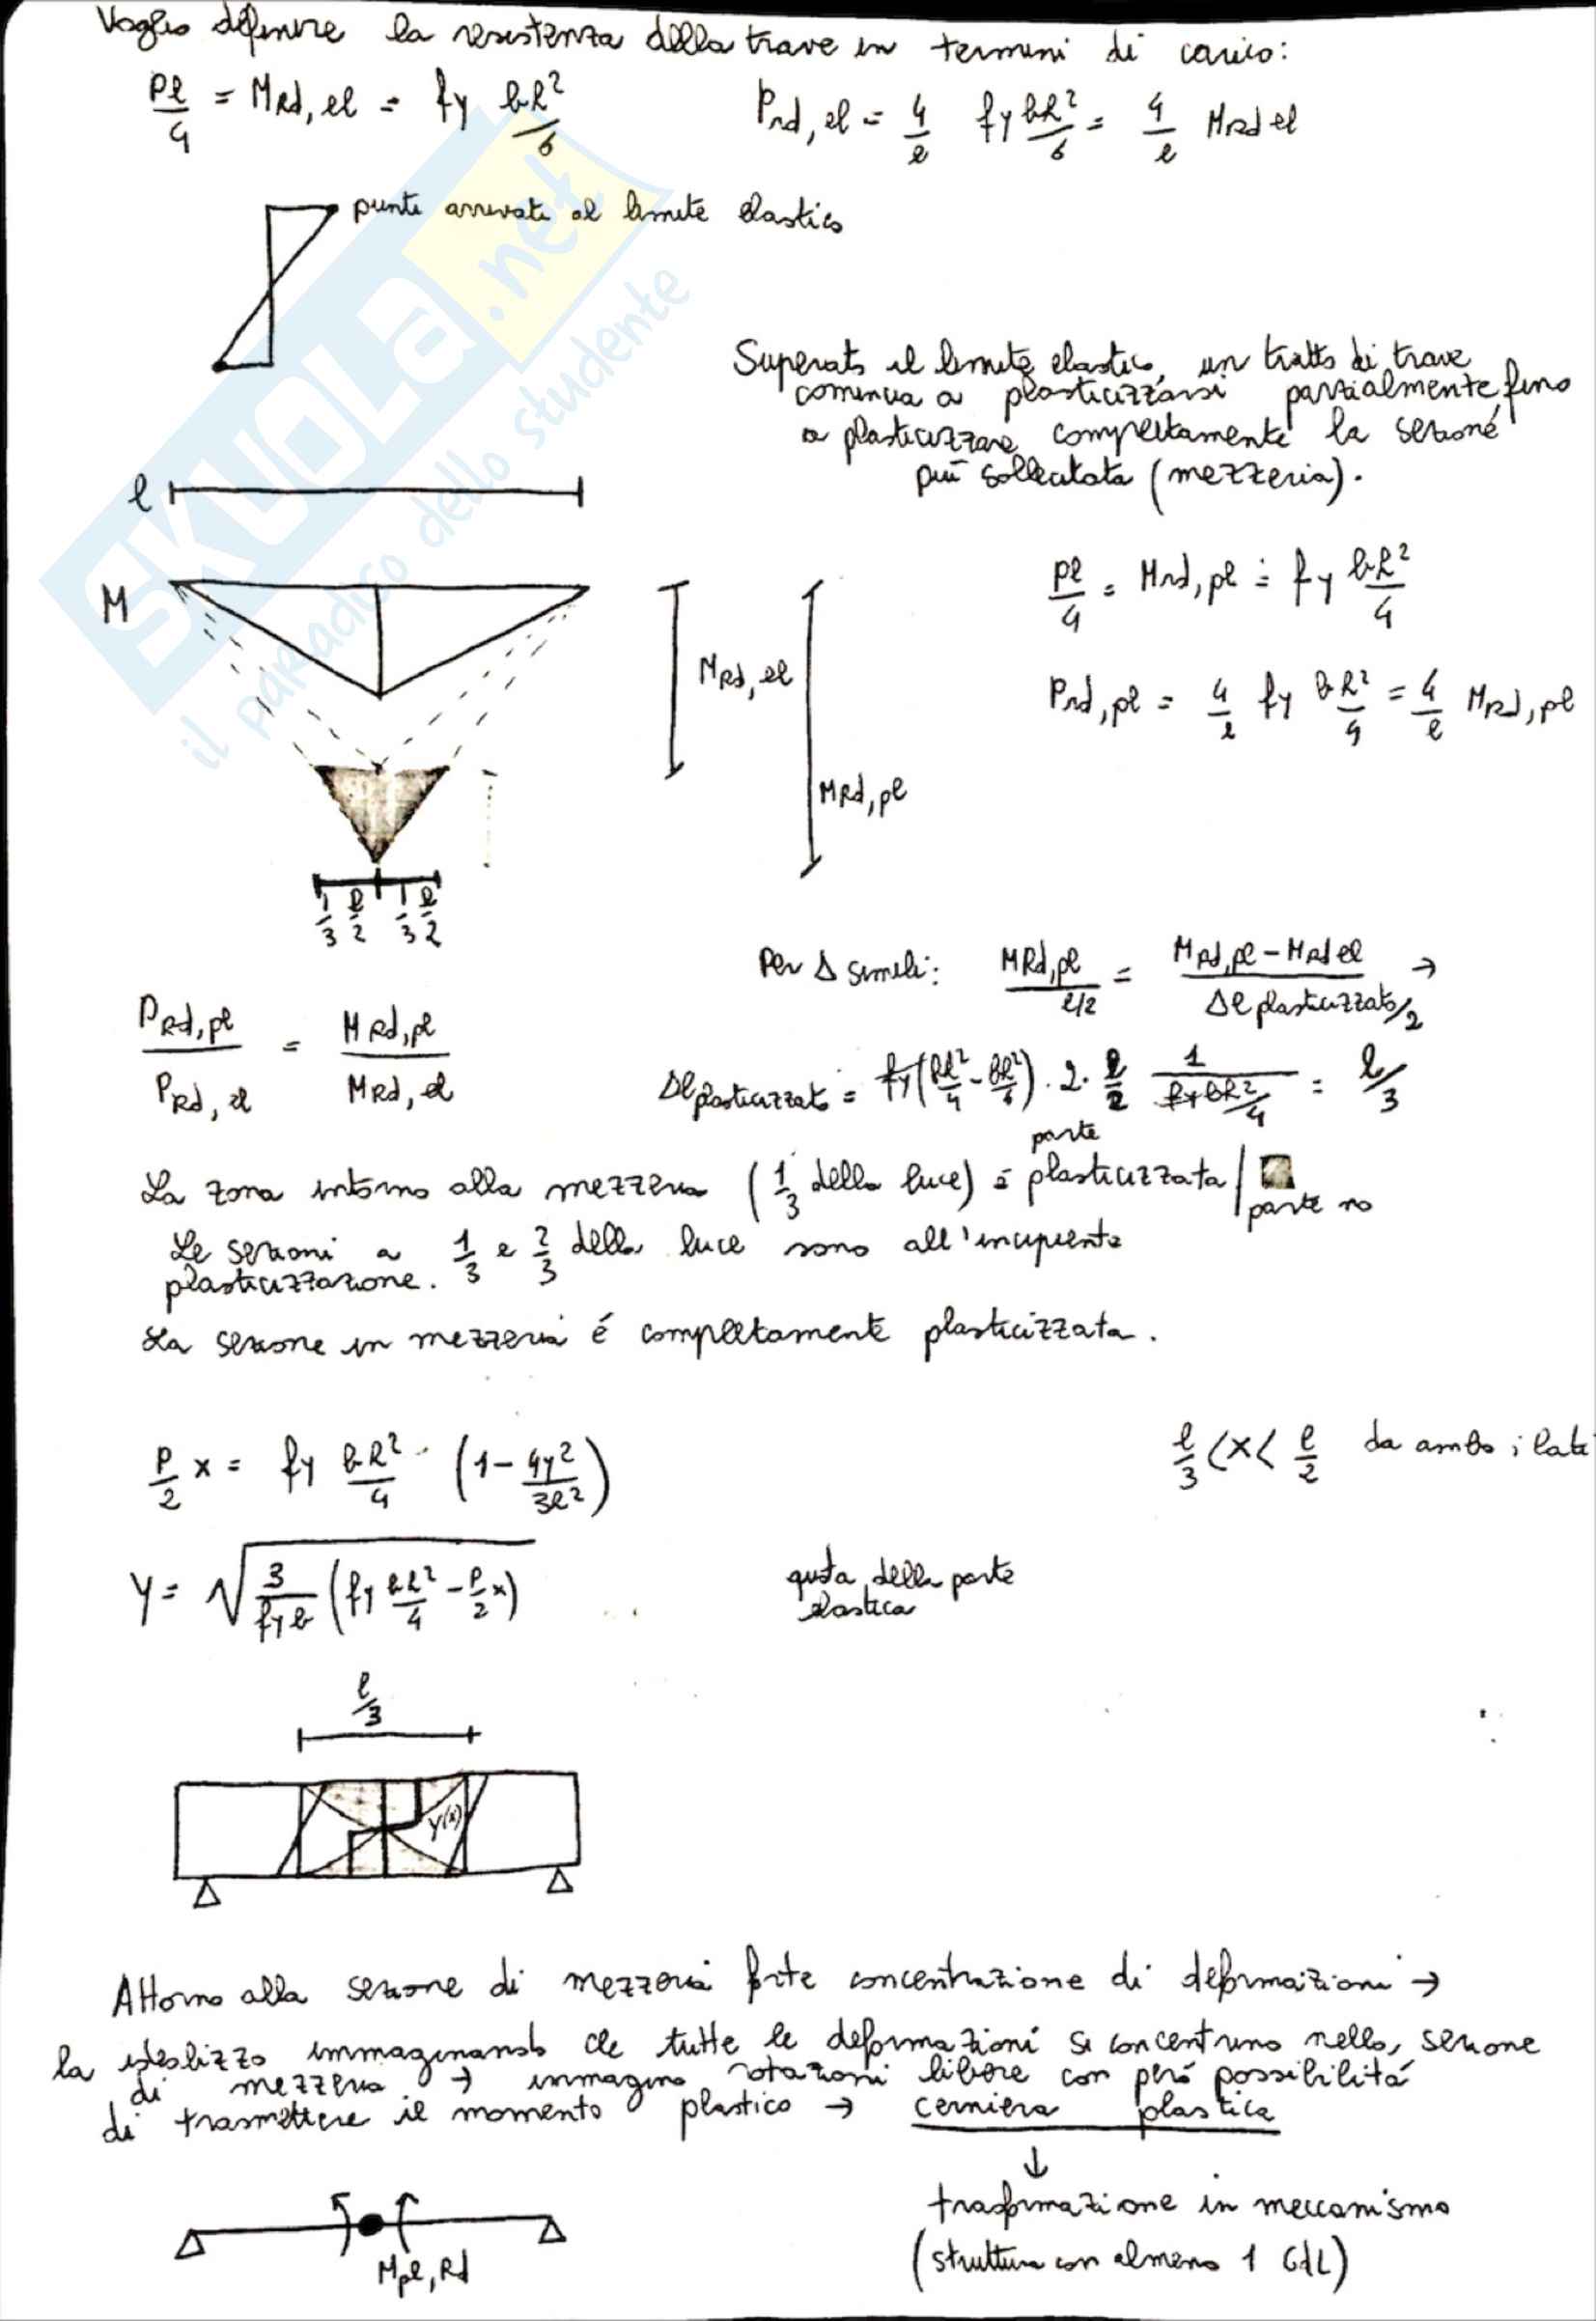 Voglio definire la resistenza della trave in termini di carico:
Pl/4 = MRd, el = fy bh²/6    Prd, el = 4/l fy bh²/6 = 4/l MRd el
punti arrivati al limite elastico
Superato il limite elastico, un tratto di trave
comincia a plasticizzarsi parzialmente, fino
a plasticizzare completamente la sezione
più sollecitata (mezzeria).
l
M
Pl/4 = Mrd, pl = fy bh²/4
MRd, el
Prd, pl = 4/l fy bh²/4 = 4/l MRd, pl
MRd, pl
1/3 l/2 1/3 l/2
Per Δ simili: MRd,pl / l/2 = MRd,pl - MRd el / Δl plasticizzato/2 →
PRd,pl / PRd, el = MRd,pl / MRd, el
Δl plasticizzato = fy(bh²/4 - bh²/6) · 2 · l/2 1/(fy bh²/4) = l/3
La zona intorno alla mezzeria (1/3 della luce) è parte plasticizzata / parte no
Le sezioni a 1/3 e 2/3 della luce sono all'incipiente
plasticizzazione.
La sezione in mezzeria é completamente plasticizzata.
P/2 x = fy bh²/4 (1 - 4y²/3h²)    l/3 < x < l/2 da ambo i lati
y = √(3/(fy b) (fy bh²/4 - P/2 x))    quota della parte
elastica
l/3
y(x)
Attorno alla sezione di mezzeria forte concentrazione di deformaizioni →
la idealizzo immaginando che tutte le deformazioni si concentrino nella sezione
di mezzeria → immagino rotazioni libere con peró possibilitá
di trasmettere il momento plastico → cerniera plastica
↓
trasformazione in meccanismo
(struttura con almeno 1 GdL)
Mpl, Rd
SKUOLA.net
il paradiso dello studente